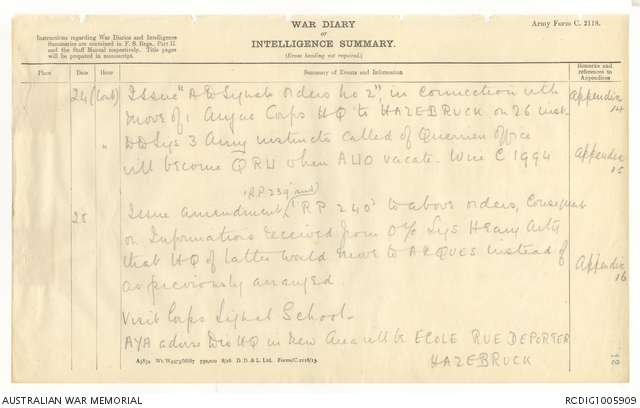 WAR DIARY
or
INTELLIGENCE SUMMARY.
(Erase heading not required.)
Army Form C. 2118.
Instructions regarding War Diaries and Intelligence
Summaries are contained in F. S. Regs., Part II.
and the Staff Manual respectively. Title pages
will be prepared in manuscript.
Place
Date
Hour
Summary of Events and Information
Remarks and references to Appendices
24 (Cont) Issue "A E Signals Orders No 2", in connection with Appendix 14
move of 1 Anzac Corps HQ to HAZEBRUCK on 26 inst
" DD Sigs 3 Army instructs called of Querrieu office
will become QRH when AHQ vacate. Wire C 1994 Appendix 15
"RP 239" and
25 Issue amendments "RP 240" to above orders, Consequent
on Information received from O/C Sigs Heavy Arty
that HQ of latter would move to ARQUES instead of Appendix 16
as previously arranged
Visit Corps Signal School.
AYA advise Div HQ in New Area will be ECOLE RUE DEPORTER
HAZEBRUCK
D. D. & L. Ltd. Forms/C.2118/13.
12
AUSTRALIAN WAR MEMORIAL
RCDIG1005909